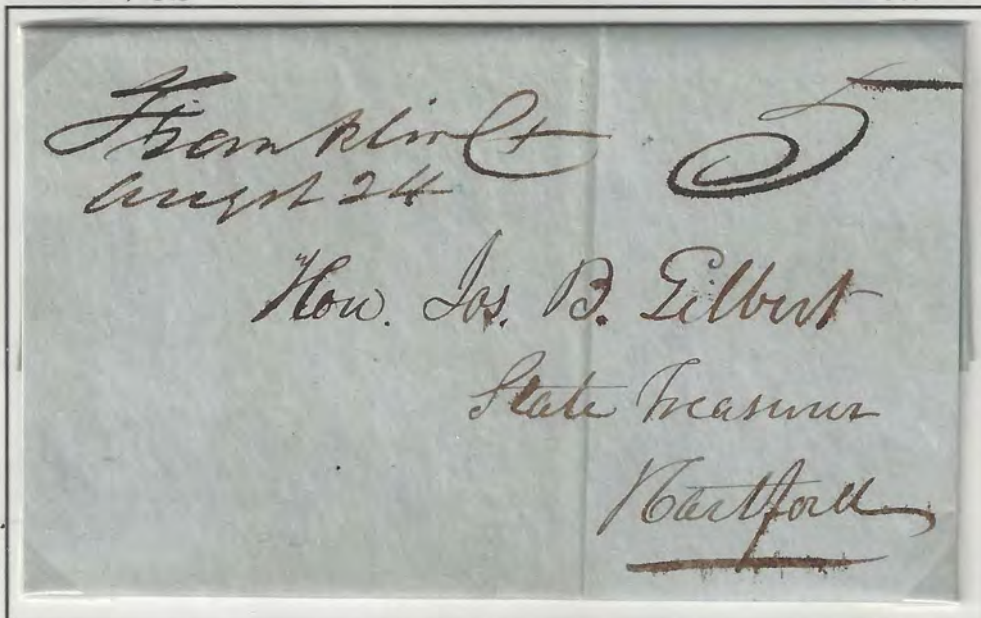 Franklin Ct 5
Augst 24
Hon. Jos. B. Gilbert
State Treasurer
Hartford